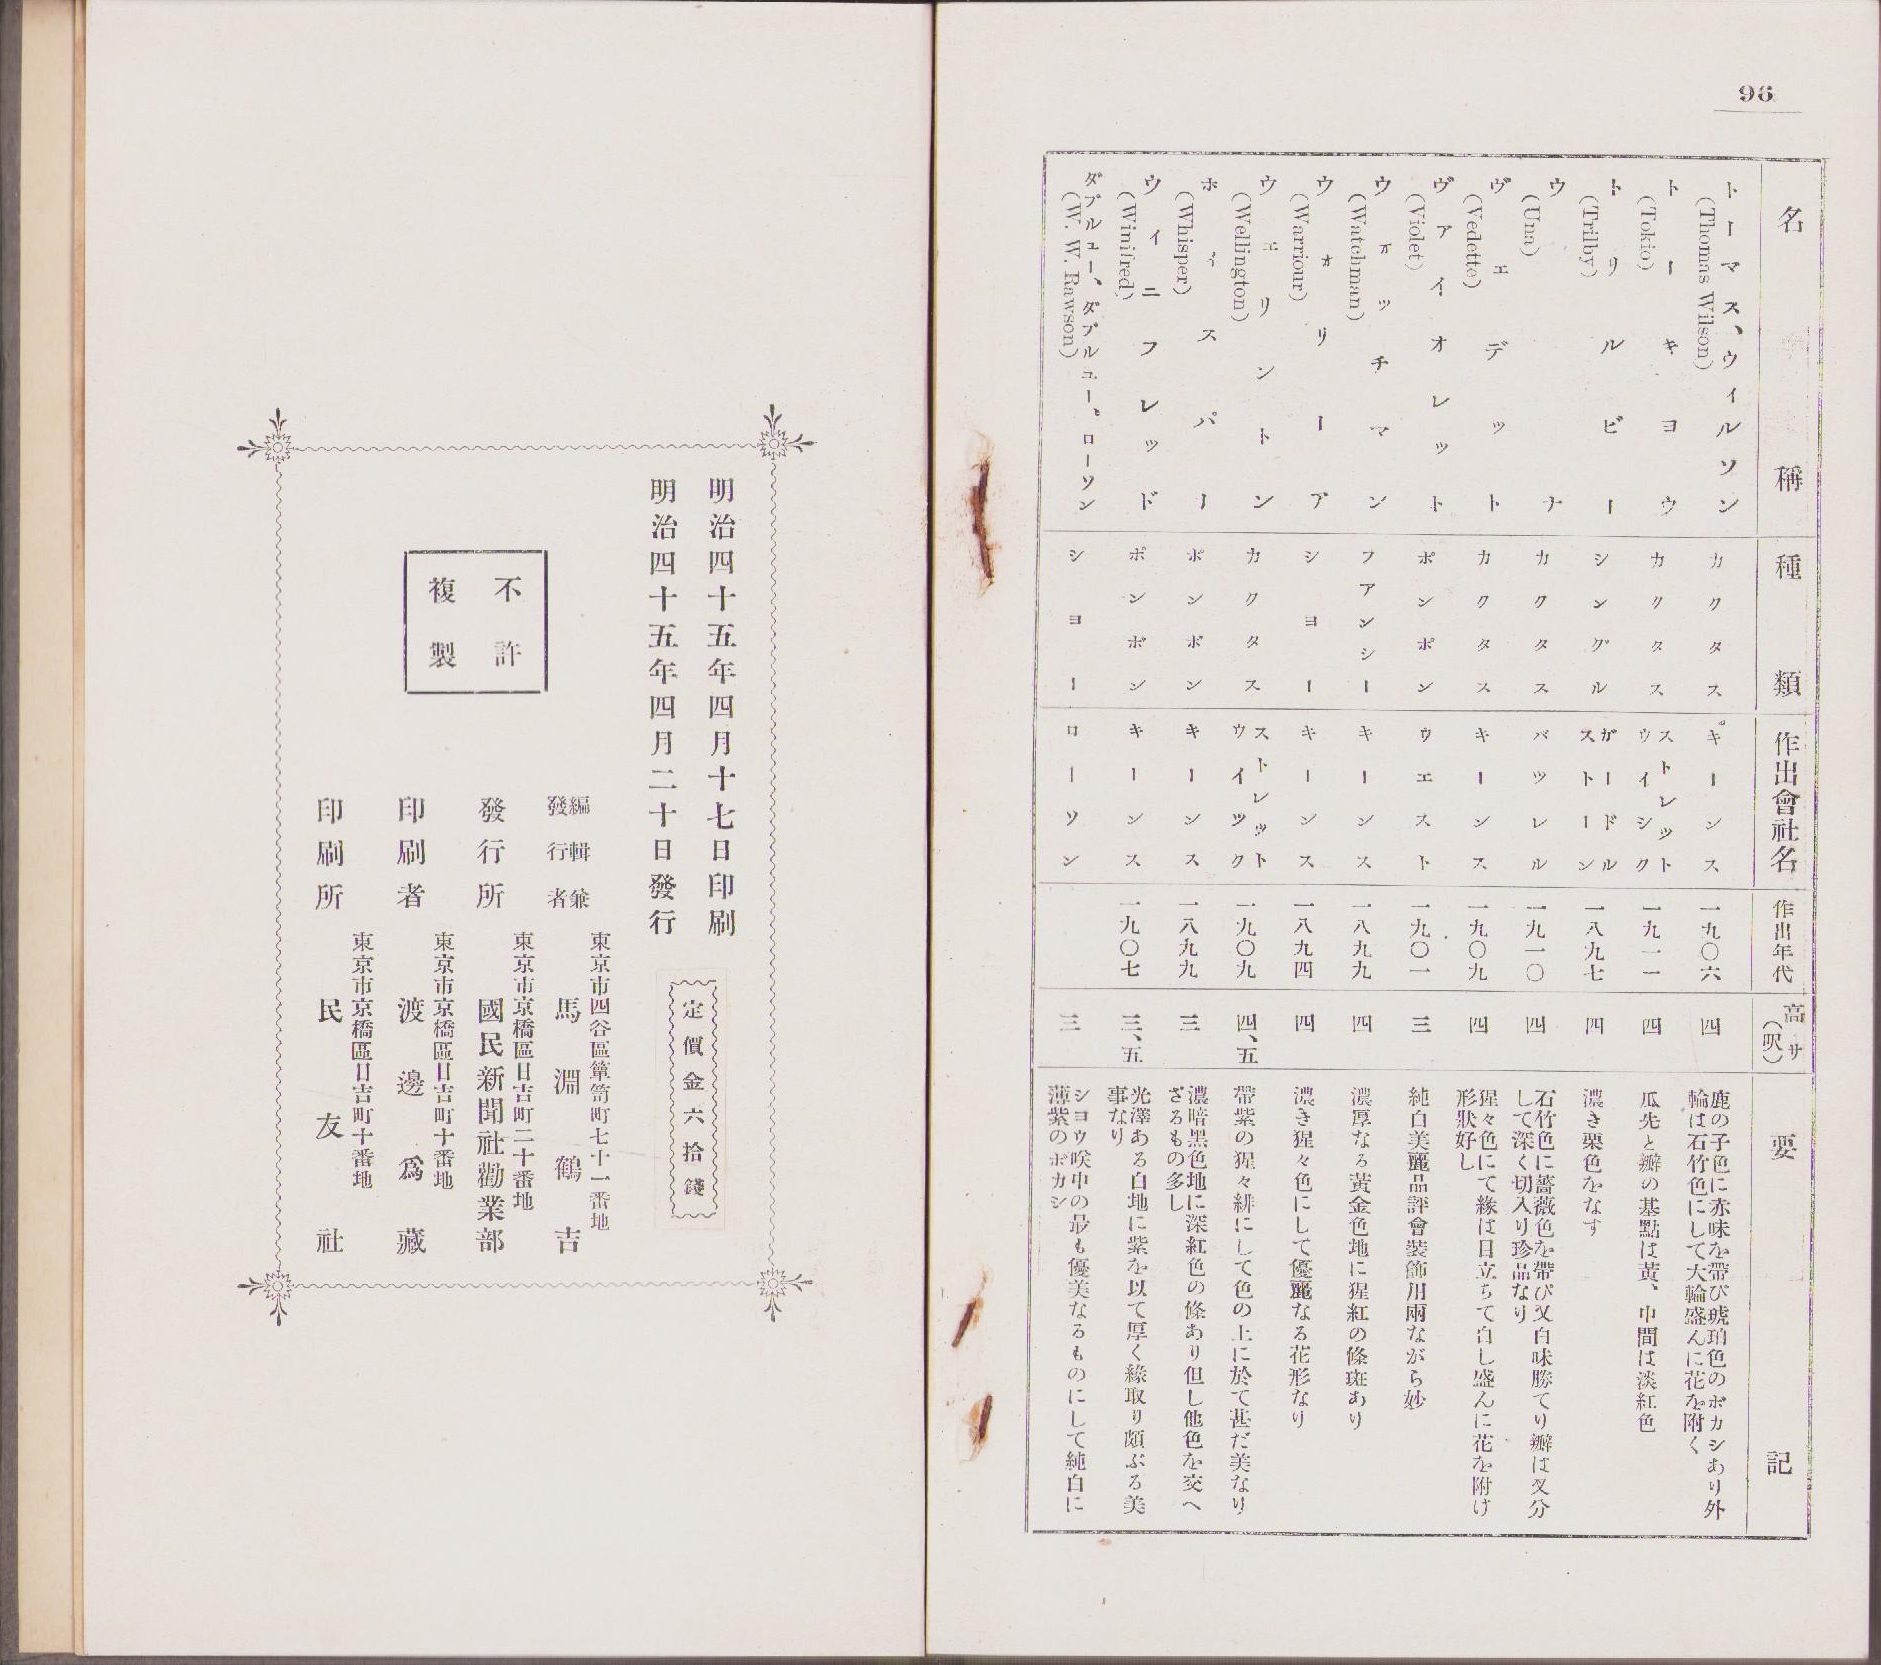 96
名稱
種類
作出會社名
作出年代
高サ(呎)
要記
トーマス、ウィルソン
(Thomas Wilson)
カクタス
キーンス
一九〇六
四
鹿の子色に赤味を帶び琥珀色のボカシあり外
輪は石竹色にして大輪盛んに花を附く
トーキヨウ
(Tokio)
カクタス
ストレット
ウイシク
一九一一
四
瓜先と瓣の基點は黃、中間は淡紅色
トリルビー
(Trilby)
シングル
ガードル
ストーン
一八九七
四
濃き栗色をなす
ウナ
(Una)
カクタス
バツレル
一九一〇
四
石竹色に薔薇色を帶び又白味勝てり瓣は又分
して深く切入り珍品なり
ヴェデット
(Vedette)
カクタス
キーンス
一九〇九
四
猩々色にて緣は目立ちて白し盛んに花を附け
形狀好し
ヴアイオレット
(Violet)
ポンポン
ウエスト
一九〇一
三
純白美麗品評會裝飾用兩ながら妙
ウォッチマン
(Watchman)
フアンシー
キーンス
一八九九
四
濃厚なる黃金色地に猩紅の條斑あり
ウォリーア
(Warriour)
シヨー
キーンス
一八九四
四
濃き猩々色にして優麗なる花形なり
ウェリントン
(Wellington)
カクタス
ストレット
ウイック
一九〇九
四、五
帶紫の猩々緋にして色の上に於て甚だ美なり
ホィスパー
(Whisper)
ポンポン
キーンス
一八九九
三
濃暗黑色地に深紅色の條あり但し他色を交へ
ざるもの多し
ウィニフレッド
(Winifred)
ポンポン
キーンス
一九〇七
三、五
光澤ある白地に紫を以て厚く緣取り頗ぶる美
事なり
ダブルユー、ダブルユー、ローソン
(W. W. Rawson)
シヨー
ローソン
三
シヨウ咲中の最も優美なるものにして純白に
薄紫のボカシ
明治四十五年四月十七日印刷
明治四十五年四月二十日發行
定價金六拾錢
不許
複製
編輯兼
發行者
東京市四谷區簞笥町七十一番地
馬淵鶴吉
發行所
東京市京橋區日吉町二十番地
國民新聞社勸業部
印刷者
東京市京橋區日吉町十番地
渡邊爲藏
印刷所
東京市京橋區日吉町十番地
民友社